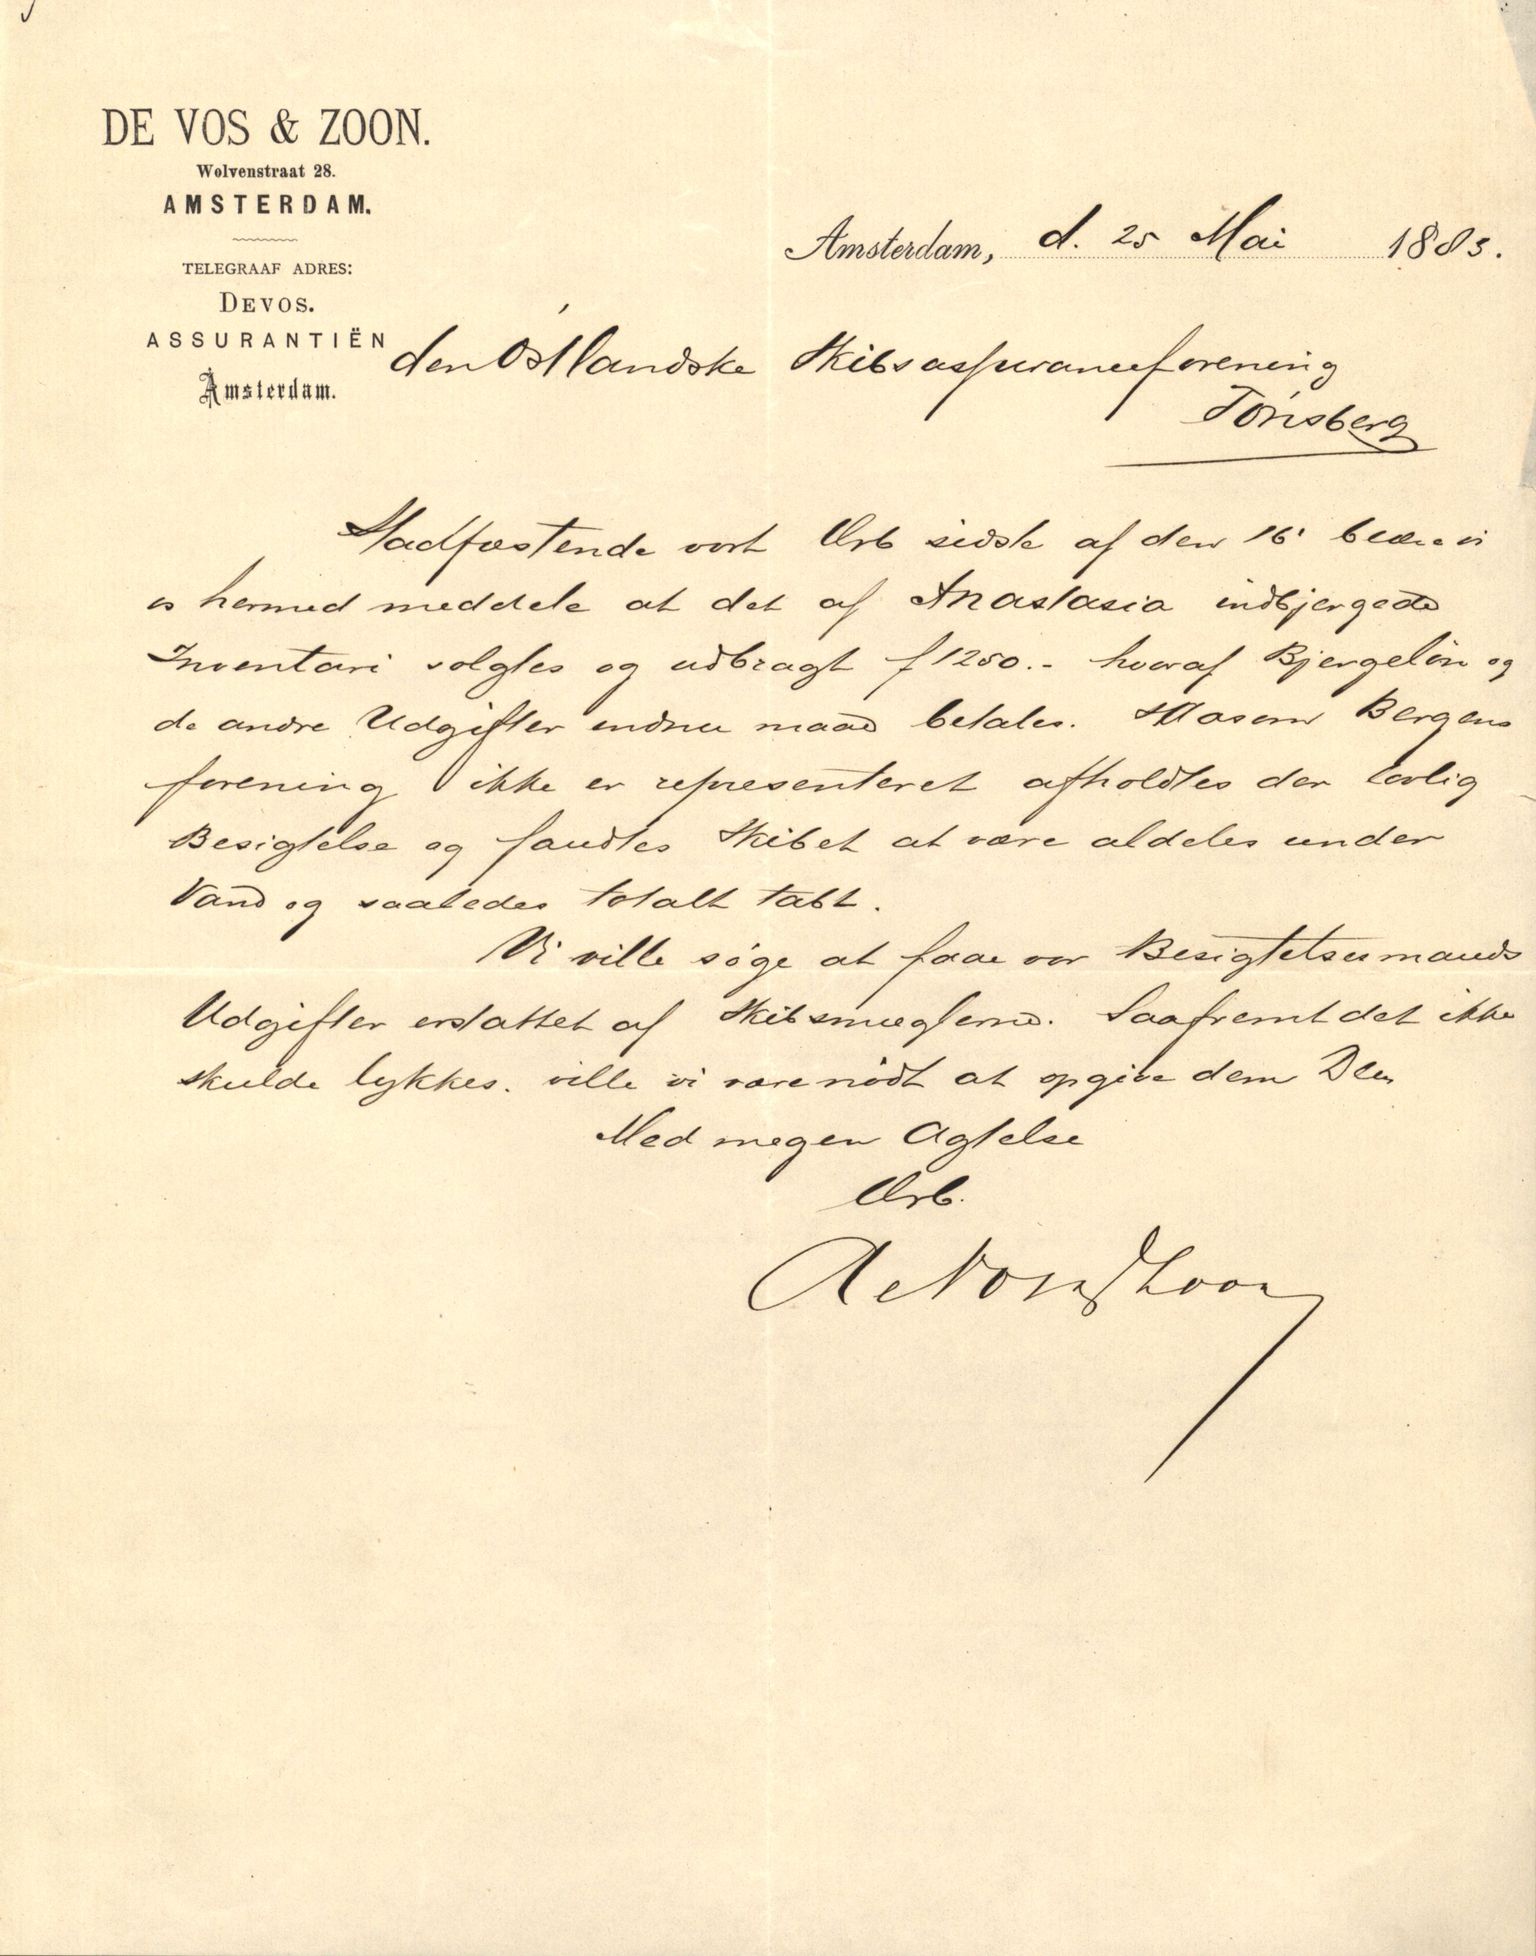 DE VOS & ZOON.
Wolvenstraat 28.
AMSTERDAM.
TELEGRAAF ADRES:
DEVOS.
ASSURANTIËN
Amsterdam.
Amsterdam, d. 25 Mai 1883.
den Östlandske Skibsassuranceforening
Tönsberg
Stadfæstende vort Ærb sidste af den 16' beære vi
os hermed meddele at det af Anastasia indbjergede
Inventari solgtes og udbragt f 1250.- hvoraf Bjergelön og
de andre Udgifter endnu maae betales. Bergens
forening ikke er repræsenteret afholdtes der lovlig
Besigtelse og fandtes Skibet at være aldeles under
Vand og saaledes totalt tabt.
Vi ville söge at faae vor Besigtelsesmands
Udgifter erstattet af Skibsmæglerne. Saafremt det ikke
skulde lykkes. ville vi være nödt at opgive dem Dem
Med megen Agtelse
Ærb.
de Vos & Zoon